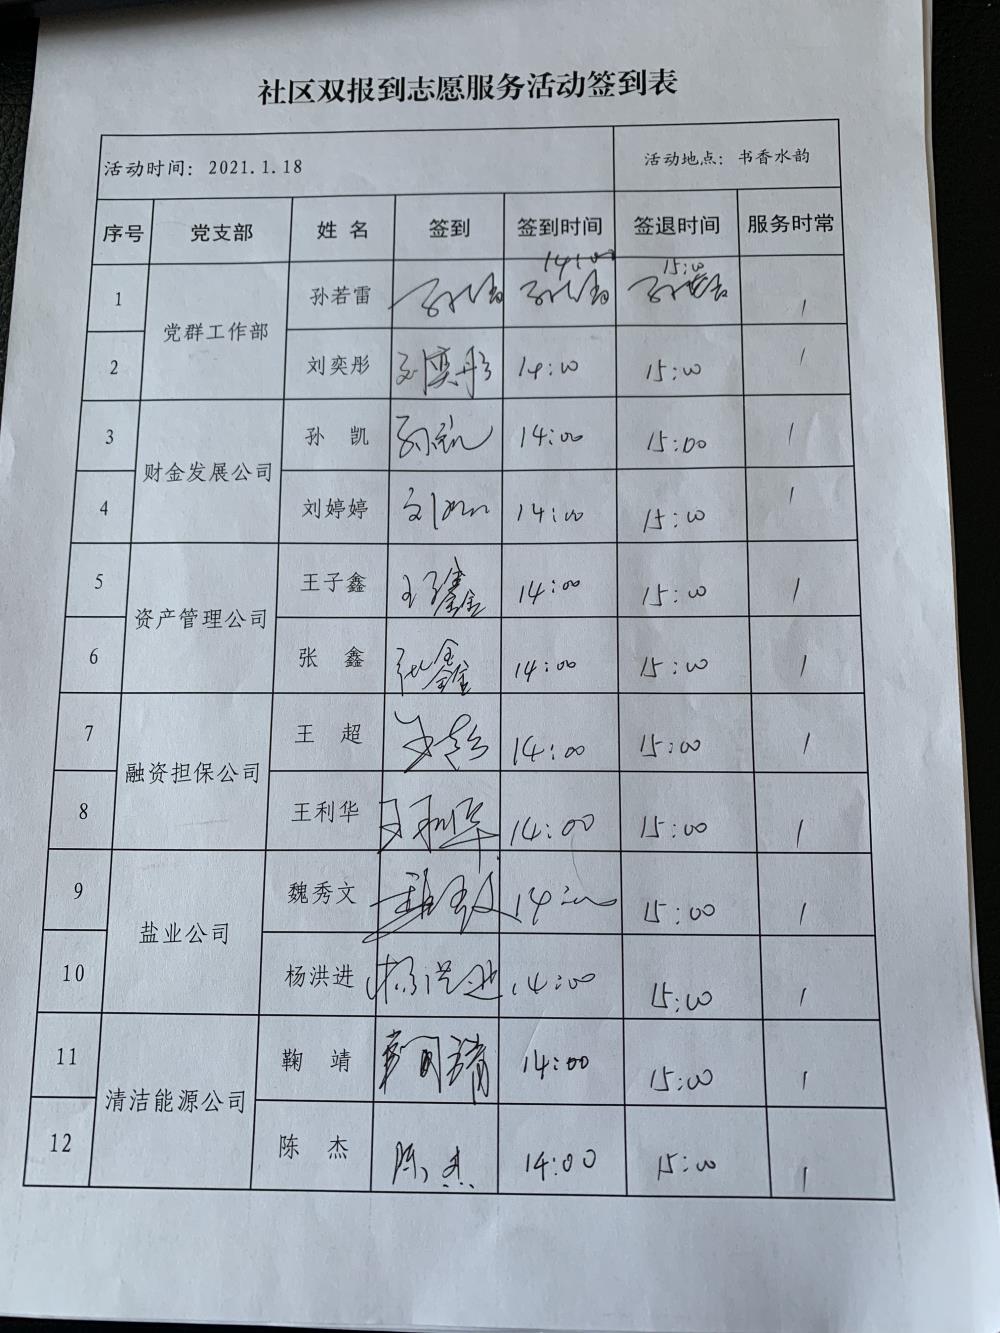 社区双报到志愿服务活动签到表
活动时间: 2021.1.18 活动地点: 书香水韵
序号 党支部 姓 名 签到 签到时间 签退时间 服务时常
1 党群工作部 孙若雷 14:00 15:00 1
2 刘奕彤 刘奕彤 14:00 15:00 1
3 财金发展公司 孙 凯 孙凯 14:00 15:00 1
4 刘婷婷 14:00 15:00 1
5 资产管理公司 王子鑫 王子鑫 14:00 15:00 1
6 张 鑫 张鑫 14:00 15:00 1
7 融资担保公司 王 超 王超 14:00 15:00 1
8 王利华 王利华 14:00 15:00 1
9 盐业公司 魏秀文 魏秀文 14:00 15:00 1
10 杨洪进 杨洪进 14:00 15:00 1
11 清洁能源公司 鞠 靖 14:00 15:00 1
12 陈 杰 陈杰 14:00 15:00 1